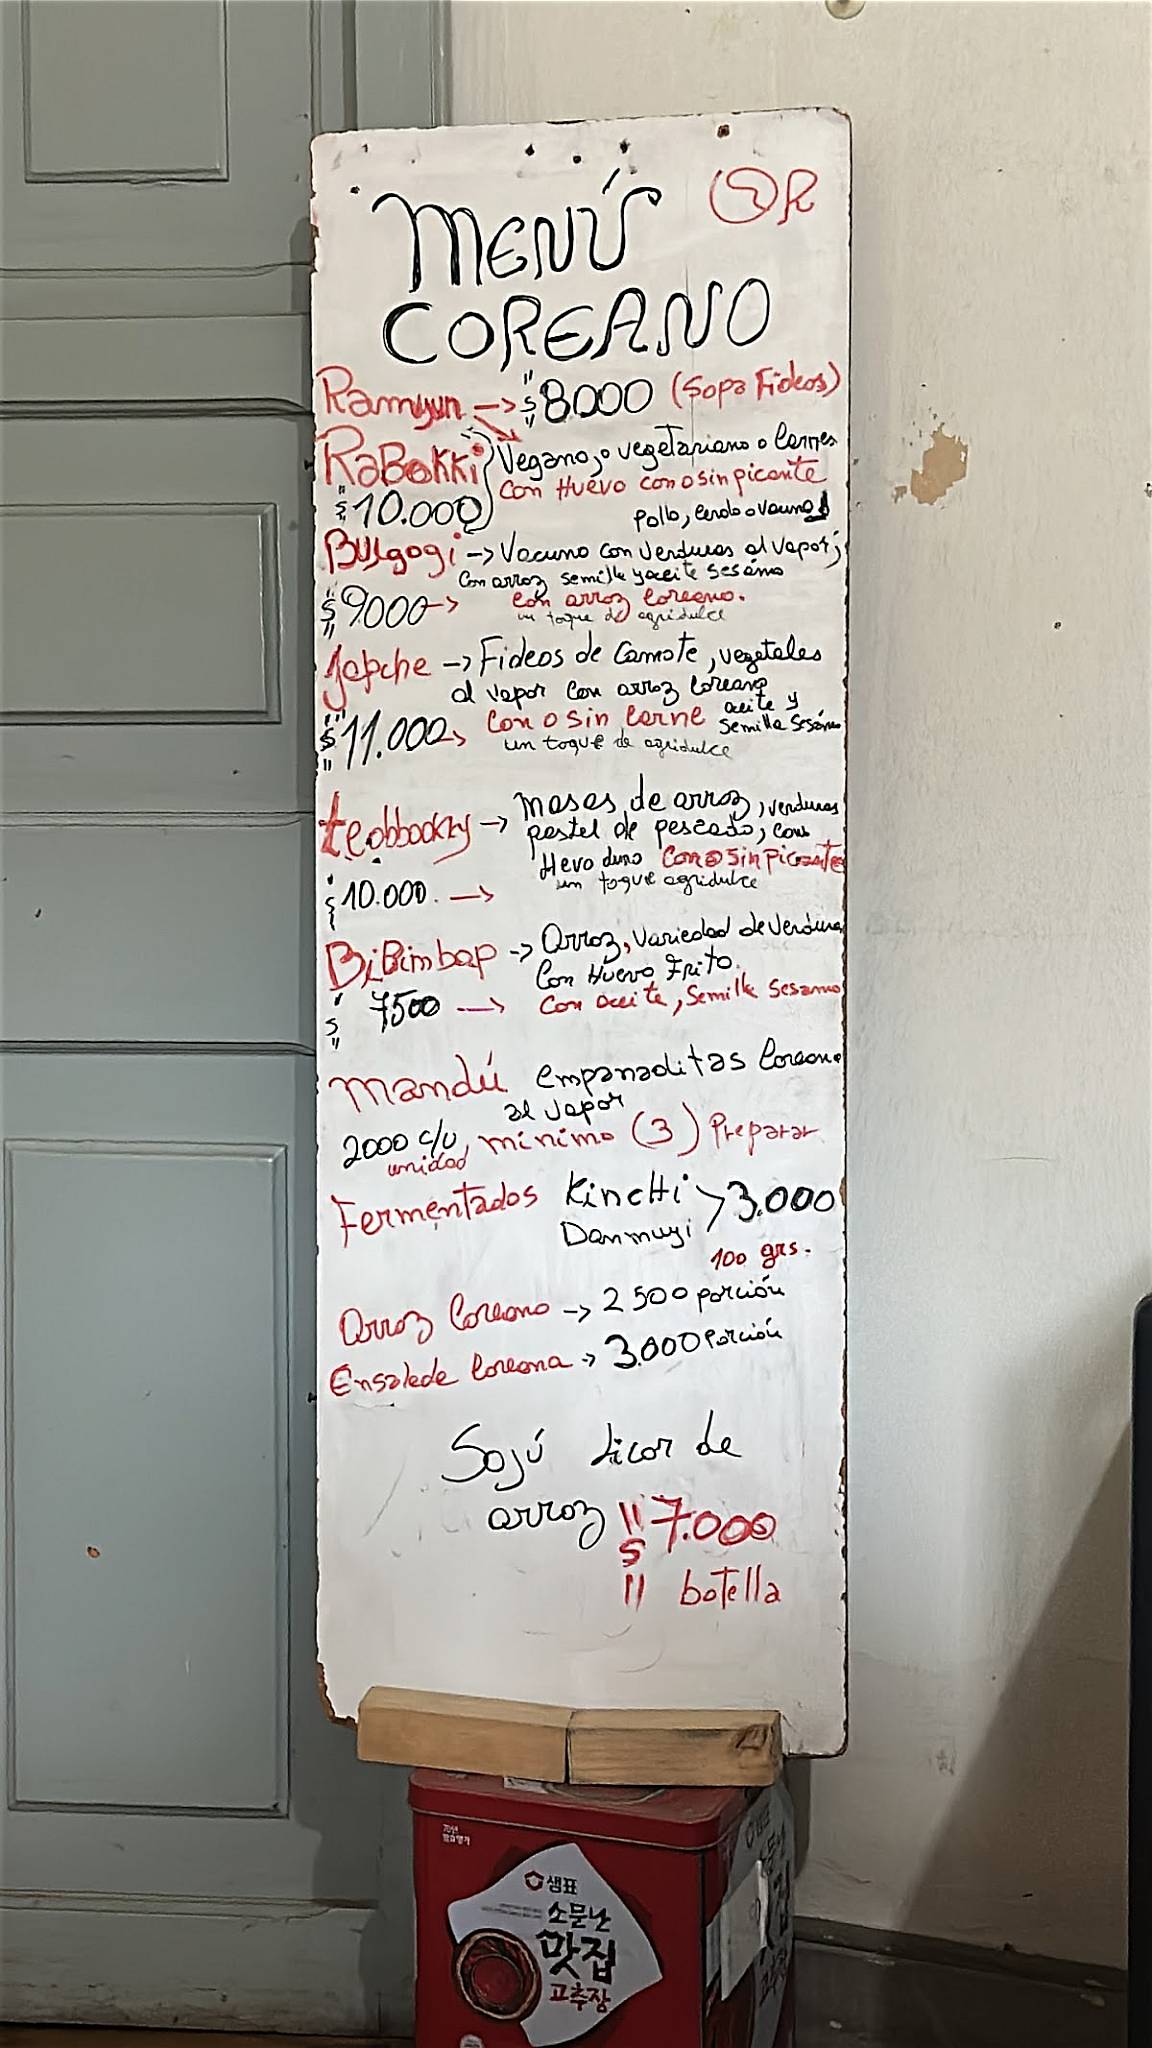 MENÚ
COREANO
Ramyun → $8000 (Sopa Fideos)
RaBokki Vegano, o vegetariano o Carnes
Con Huevo con o sin picante
$10.000 pollo, cerdo o vacuno
Bulgogi → Vacuno con verduras al vapor;
Con arroz semilla y aceite sesámo
$9000 → con arroz Coreano.
un toque de agridulce
Japche → Fideos de Camote, vegetales
al vapor con arroz Coreano
$11.000 → Con o sin Carne aceite y
semilla sesámo
un toque de agridulce
teobbokky → masas de arroz, verduras
pastel de pescado, con
Hevo duro Con o sin picante
un toque agridulce
$10.000. →
BiBimbap → Arroz, Variedad de Verdura
Con Huevo Frito.
$ 7500 → Con aceite, Semilla Sesamo
Mandú empanaditas Coreana
al vapor
2000 c/u, minimo (3) Preparar
unidad
Fermentados Kincthi > 3.000
Danmuyi
100 grs.
Arroz Coreano → 2500 porción
Ensalada Coreana → 3.000 Porción
Sojú Licor de
arroz $7.000
botella
샘표
소문난
맛집
고추장